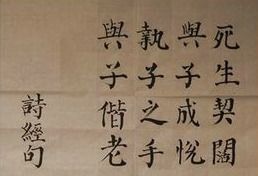 死生契闊
與子成悅
執子之手
與子偕老
詩經句